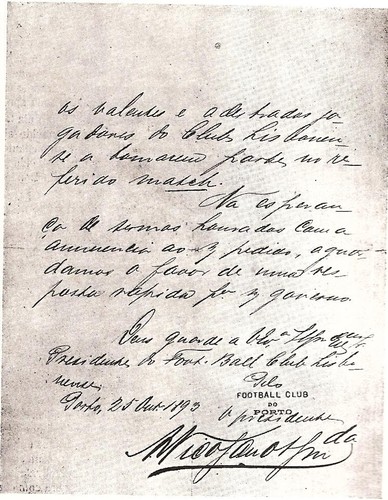 os valentes e adestrados jo-
gadores do Club Lisbonen-
se a tomarem parte no re-
ferido match.
Na esperan-
ça de sermos honrados com a
annuencia ao n/ pedido, aguar-
damos o favor de uma res-
posta rapida p.ª n/ governo.
Deus guarde a
Presidente do Foot-Ball Club Lisbo-
nense.
Pelo
FOOTBALL CLUB
DO
PORTO
Porto, 25 Out. 1893
O presidente